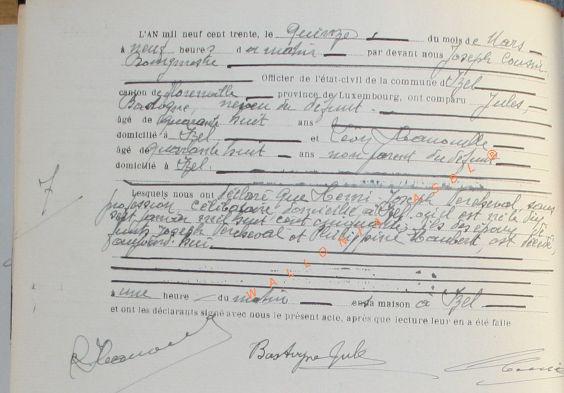 L'AN mil neuf cent trente, le quinze du mois de Mars
à neuf heures du matin par devant nous Joseph
Bourgmestre Officier de l'état-civil de la commune d'Izel
canton de Florenville province de Luxembourg, ont comparu Jules,
Bastogne, neveu du défunt
âgé de quarante huit ans
domicilié à Izel et Léon
âgé de quarante huit ans non parent du défunt
domicilié à Izel
7
Lesquels nous ont déclaré que Henri Joseph Percheval sans
profession, célibataire domicilié à Izel, où il est né le dix
sept janvier mil huit cent fils des époux
Joseph Percheval et Philippine Lambert, est décédé,
aujourd'hui
à une heure du matin en sa maison à Izel
et ont les déclarants signé avec nous le présent acte, après que lecture leur en a été faite
Bastogne Jules
WALLONIA ASBL ©